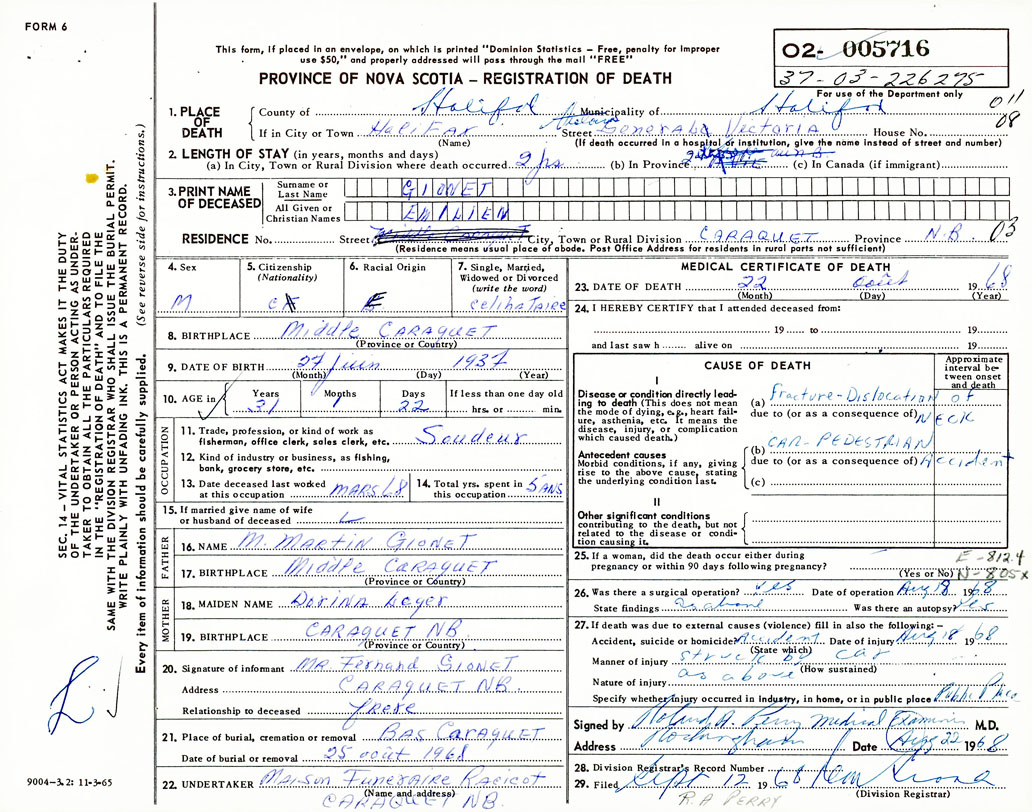 FORM 6
This form, if placed in an envelope, on which is printed "Dominion Statistics – Free, penalty for improper
use $50," and properly addressed will pass through the mail "FREE"
PROVINCE OF NOVA SCOTIA – REGISTRATION OF DEATH
02- 005716
37-03-226275
For use of the Department only
011
08
1. PLACE OF DEATH
County of Halifax Municipality of Halifax
If in City or Town Halifax Street General Victoria House No.
(Name) (If death occurred in a hospital or institution, give the name instead of street and number)
2. LENGTH OF STAY (in years, months and days)
(a) In City, Town or Rural Division where death occurred 2 hrs (b) In Province (c) In Canada (if immigrant)
3. PRINT NAME OF DECEASED
Surname or Last Name GIONET
All Given or Christian Names EMILIEN
RESIDENCE No. Street City, Town or Rural Division CARAQUET Province N.B. 03
(Residence means usual place of abode. Post Office Address for residents in rural parts not sufficient)
4. Sex
M
5. Citizenship
(Nationality)
6. Racial Origin
7. Single, Married,
Widowed or Divorced
(write the word)
CELIBATAIRE
8. BIRTHPLACE Middle CARAQUET
(Province or Country)
9. DATE OF BIRTH 27 juin 1937
(Month) (Day) (Year)
10. AGE in
Years Months Days If less than one day old
31 1 22 hrs. or min.
OCCUPATION
11. Trade, profession, or kind of work as
fisherman, office clerk, sales clerk, etc. Soudeur
12. Kind of industry or business, as fishing,
bank, grocery store, etc.
13. Date deceased last worked
at this occupation MARS 68
14. Total yrs. spent in
this occupation 5 ANS
15. If married give name of wife
or husband of deceased
FATHER
16. NAME M. MARTIN GIONET
17. BIRTHPLACE Middle CARAQUET
(Province or Country)
MOTHER
18. MAIDEN NAME Dorina Leger
19. BIRTHPLACE CARAQUET NB
(Province or Country)
20. Signature of informant MR Fernand GIONET
Address CARAQUET NB.
Relationship to deceased frere
21. Place of burial, cremation or removal BAS CARAQUET
Date of burial or removal 25 août 1968
22. UNDERTAKER Maison Funeraire Racicot
(Name and address)
CARAQUET NB.
MEDICAL CERTIFICATE OF DEATH
23. DATE OF DEATH 22 août 1968
(Month) (Day) (Year)
24. I HEREBY CERTIFY that I attended deceased from:
19 to 19
and last saw h alive on 19
CAUSE OF DEATH
Approximate
interval be-
tween onset
and death
I
Disease or condition directly lead-
ing to death (This does not mean
the mode of dying, e.g., heart fail-
ure, asthenia, etc. It means the
disease, injury, or complication
which caused death.)
(a) Fracture-Dislocation of
due to (or as a consequence of) NECK
Antecedent causes
Morbid conditions, if any, giving
rise to the above cause, stating
the underlying condition last.
(b) CAR-PEDESTRIAN
due to (or as a consequence of) Accident
(c)
II
Other significant conditions
contributing to the death, but not
related to the disease or condi-
tion causing it.
25. If a woman, did the death occur either during
pregnancy or within 90 days following pregnancy?
(Yes or No)
E-812.4
N-805x
26. Was there a surgical operation? yes Date of operation Aug 18 1968
State findings as above Was there an autopsy? Yes
27. If death was due to external causes (violence) fill in also the following:–
Accident, suicide or homicide? Accident Date of injury Aug 18 1968
(State which)
Manner of injury struck by car
(How sustained)
Nature of injury as above
Specify whether injury occurred in industry, in home, or in public place Public Place
Signed by Roland A. Perry Medical Examiner M.D.
Address Rockingham Date Aug 22 1968
28. Division Registrar's Record Number
29. Filed Sept 12 1968
(Division Registrar)
R.A PERRY
SEC. 14 – VITAL STATISTICS ACT MAKES IT THE DUTY
OF THE UNDERTAKER OR PERSON ACTING AS UNDER-
TAKER TO OBTAIN ALL THE PARTICULARS REQUIRED
IN THE "REGISTRATION OF DEATH" AND TO FILE THE
SAME WITH THE DIVISION REGISTRAR WHO SHALL ISSUE THE BURIAL PERMIT.
WRITE PLAINLY WITH UNFADING INK. THIS IS A PERMANENT RECORD.
Every item of information should be carefully supplied. (See reverse side for instructions.)
9004–3.2: 11-3-65